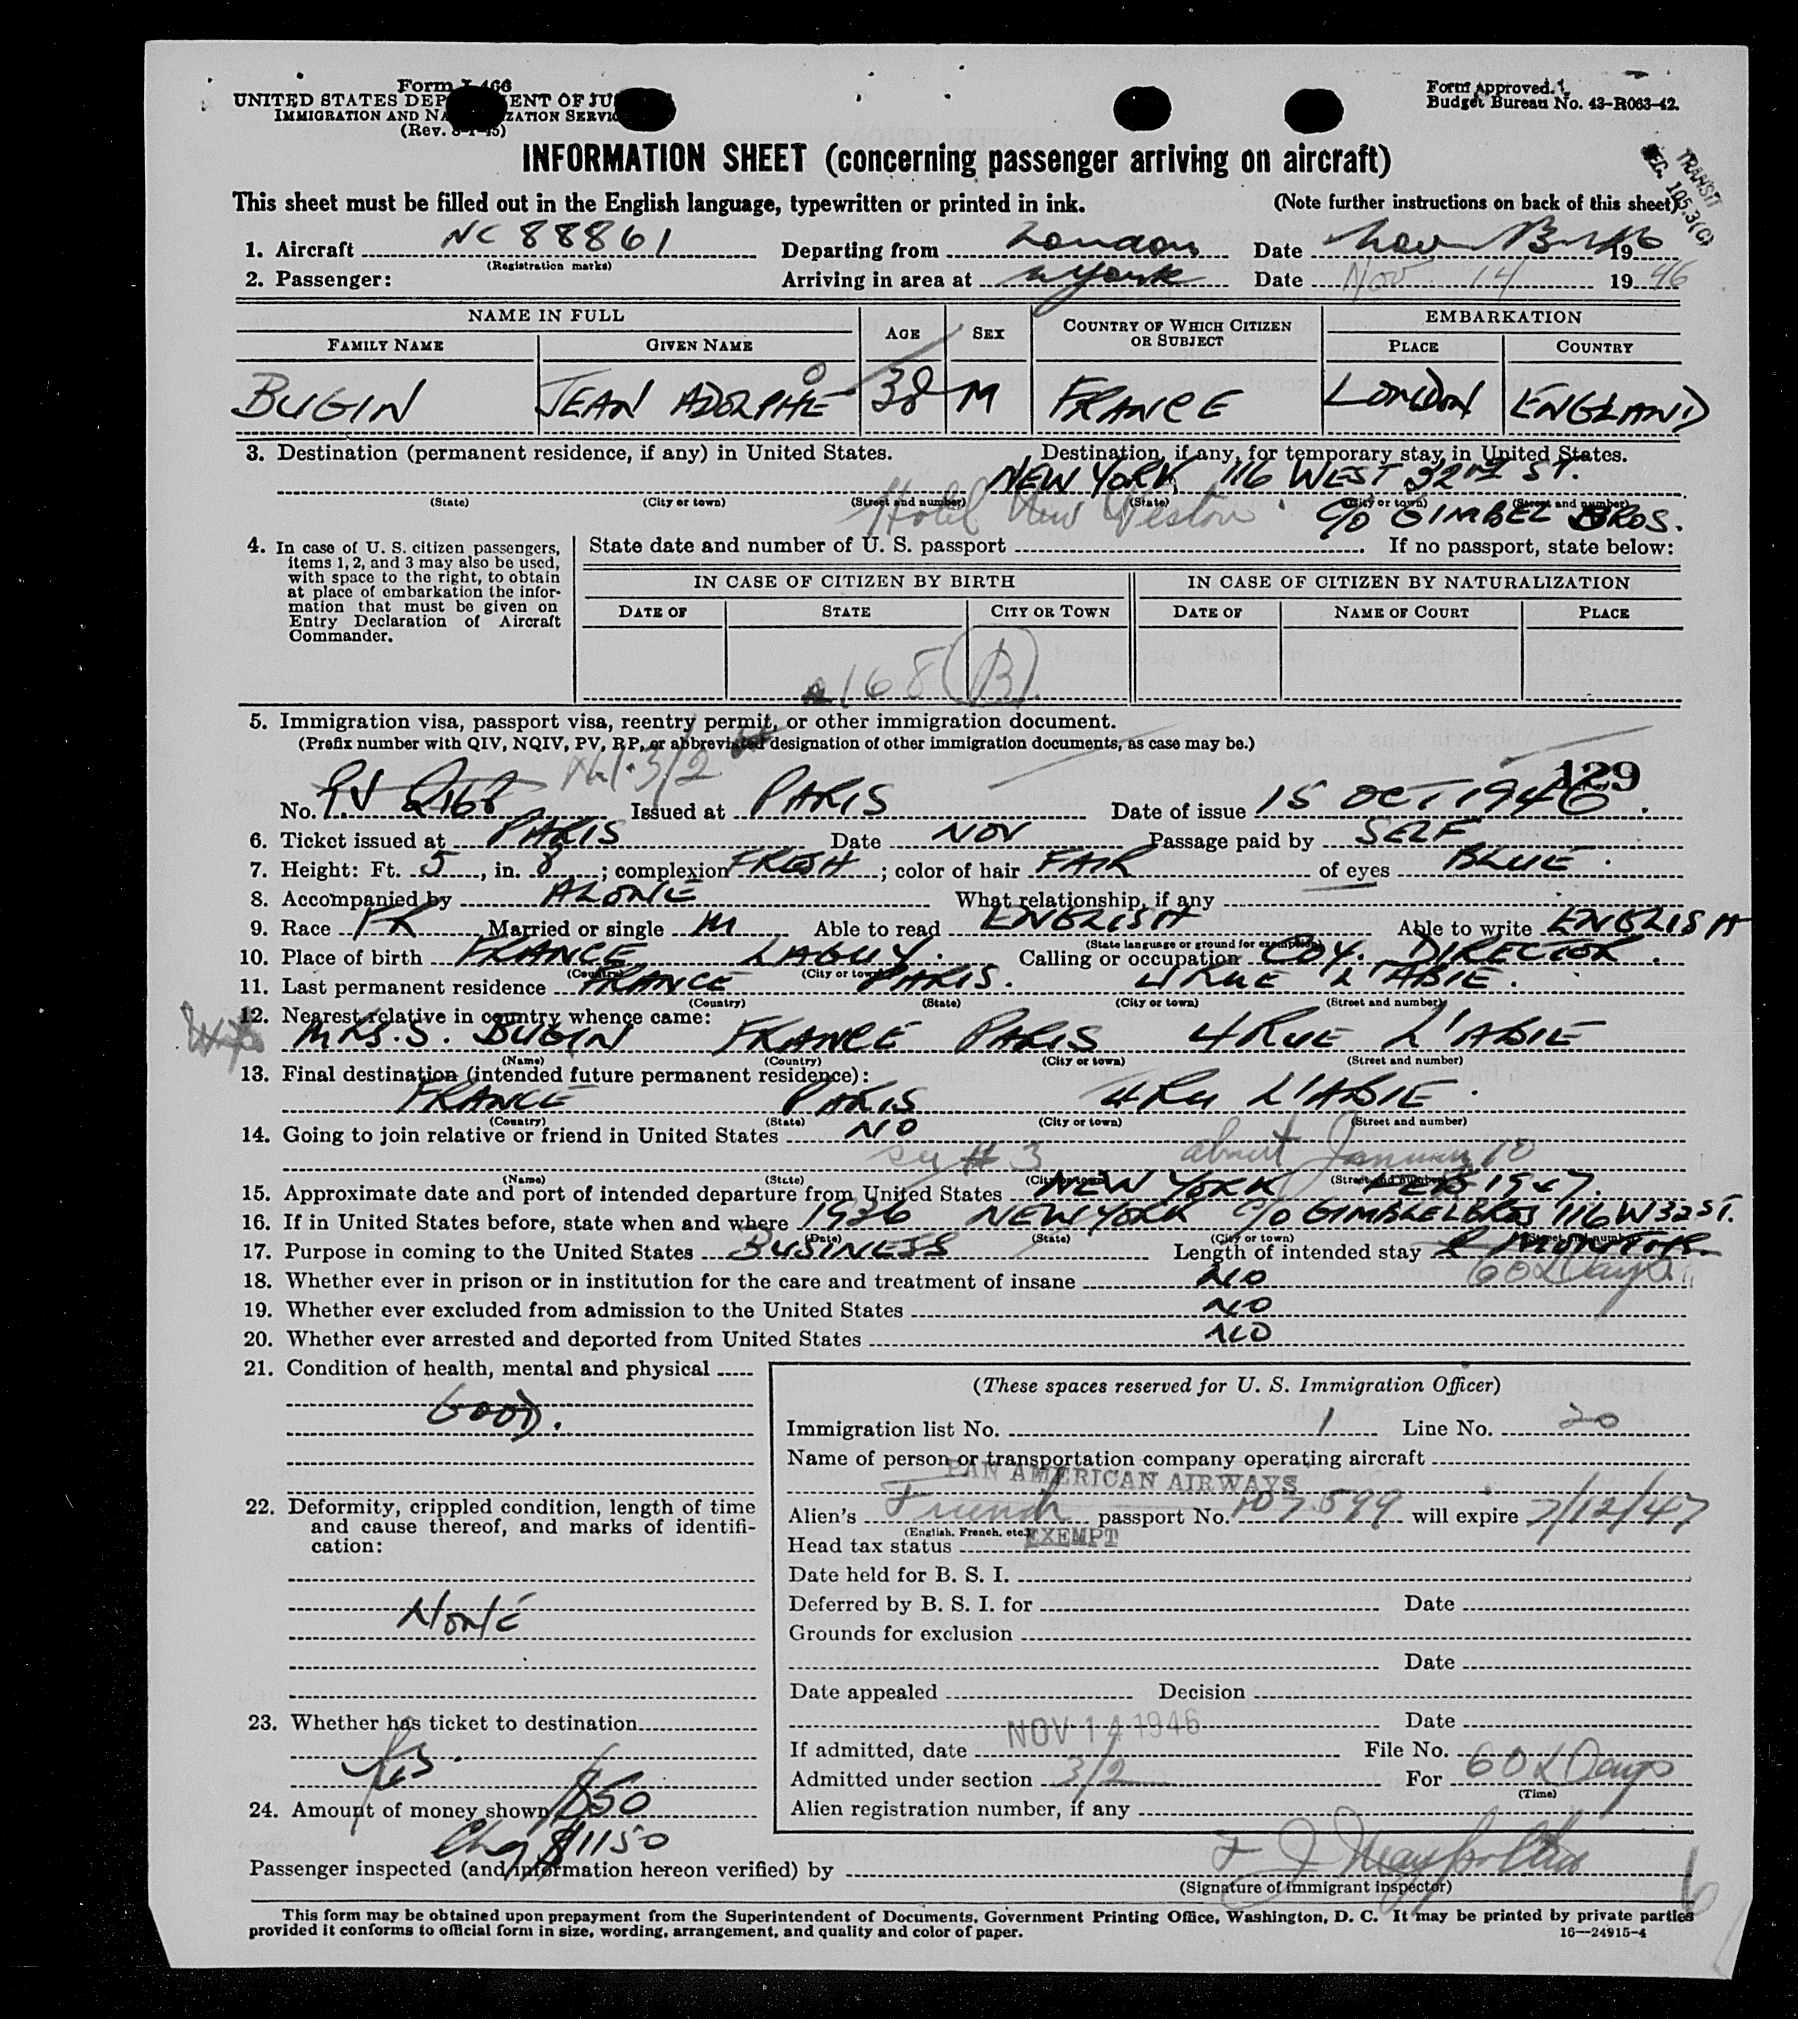 Form I-466
UNITED STATES DEP ENT OF JU
IMMIGRATION AND NA ZATION SERVIC
(Rev. 8-1-45)
Form Approved.
Budget Bureau No. 43-R063-42.
TRANSIT
SEC. 105.3(C)
INFORMATION SHEET (concerning passenger arriving on aircraft)
This sheet must be filled out in the English language, typewritten or printed in ink. (Note further instructions on back of this sheet)
1. Aircraft NC 88861 Departing from London Date Nov 13 1946
(Registration marks)
2. Passenger: Arriving in area at N York Date Nov. 14 1946
NAME IN FULL AGE SEX COUNTRY OF WHICH CITIZEN OR SUBJECT EMBARKATION
FAMILY NAME GIVEN NAME PLACE COUNTRY
BUGIN JEAN ADOLPHE 38 M FRANCE LONDON ENGLAND
3. Destination (permanent residence, if any) in United States. Destination, if any, for temporary stay in United States.
NEW YORK 116 WEST 32nd ST.
(State) (City or town) (Street and number) (State) (City or town) (Street and number)
Hotel New Weston c/o GIMBEL BROS.
4. In case of U. S. citizen passengers, items 1, 2, and 3 may also be used, with space to the right, to obtain at place of embarkation the information that must be given on Entry Declaration of Aircraft Commander.
State date and number of U. S. passport If no passport, state below:
IN CASE OF CITIZEN BY BIRTH IN CASE OF CITIZEN BY NATURALIZATION
DATE OF STATE CITY OR TOWN DATE OF NAME OF COURT PLACE
168 (B)
5. Immigration visa, passport visa, reentry permit, or other immigration document.
(Prefix number with QIV, NQIV, PV, RP, or abbreviated designation of other immigration documents, as case may be.)
3/2
129
No. PV 2168 Issued at PARIS Date of issue 15 OCT 1946.
6. Ticket issued at PARIS Date NOV Passage paid by SELF
7. Height: Ft. 5, in. 8; complexion FRESH; color of hair FAIR of eyes BLUE.
8. Accompanied by ALONE What relationship, if any
9. Race FR Married or single M Able to read ENGLISH Able to write ENGLISH
(State language or ground for exemption)
10. Place of birth FRANCE LAGNY. Calling or occupation COY. DIRECTOR.
(Country) (City or town)
11. Last permanent residence FRANCE PARIS. 4 RUE L'ABIE.
(Country) (State) (City or town) (Street and number)
12. Nearest relative in country whence came:
Wife MRS. S. BUGIN FRANCE PARIS 4 RUE L'ABIE
(Name) (Country) (City or town) (Street and number)
13. Final destination (intended future permanent residence):
FRANCE PARIS 4 RU L'ABIE.
(Country) (State) (City or town) (Street and number)
14. Going to join relative or friend in United States NO
see # 3 about January 10
(Name) (State) (City or town) (Street and number)
15. Approximate date and port of intended departure from United States NEW YORK FEB 1947.
16. If in United States before, state when and where 1936 NEW YORK c/o GIMBEL BROS 116 W 32 ST.
(Date) (State) (City or town) (Street and number)
17. Purpose in coming to the United States BUSINESS Length of intended stay 2 MONTHS
60 Days
18. Whether ever in prison or in institution for the care and treatment of insane NO
19. Whether ever excluded from admission to the United States NO
20. Whether ever arrested and deported from United States NO
21. Condition of health, mental and physical
GOOD.
22. Deformity, crippled condition, length of time and cause thereof, and marks of identification:
NONE
23. Whether has ticket to destination
Yes.
24. Amount of money shown $50
Chq $1150
(These spaces reserved for U. S. Immigration Officer)
Immigration list No. 1 Line No. 20
Name of person or transportation company operating aircraft
PAN AMERICAN AIRWAYS
Alien's French passport No. 107.599 will expire 7/12/47
(English, French, etc.)
Head tax status EXEMPT
Date held for B. S. I.
Deferred by B. S. I. for Date
Grounds for exclusion
Date
Date appealed Decision
Date
If admitted, date NOV 14 1946 File No.
Admitted under section 3/2 For 60 Days
(Time)
Alien registration number, if any
Passenger inspected (and information hereon verified) by
(Signature of immigrant inspector)
This form may be obtained upon prepayment from the Superintendent of Documents, Government Printing Office, Washington, D. C. It may be printed by private parties
provided it conforms to official form in size, wording, arrangement, and quality and color of paper. 16—24915-4